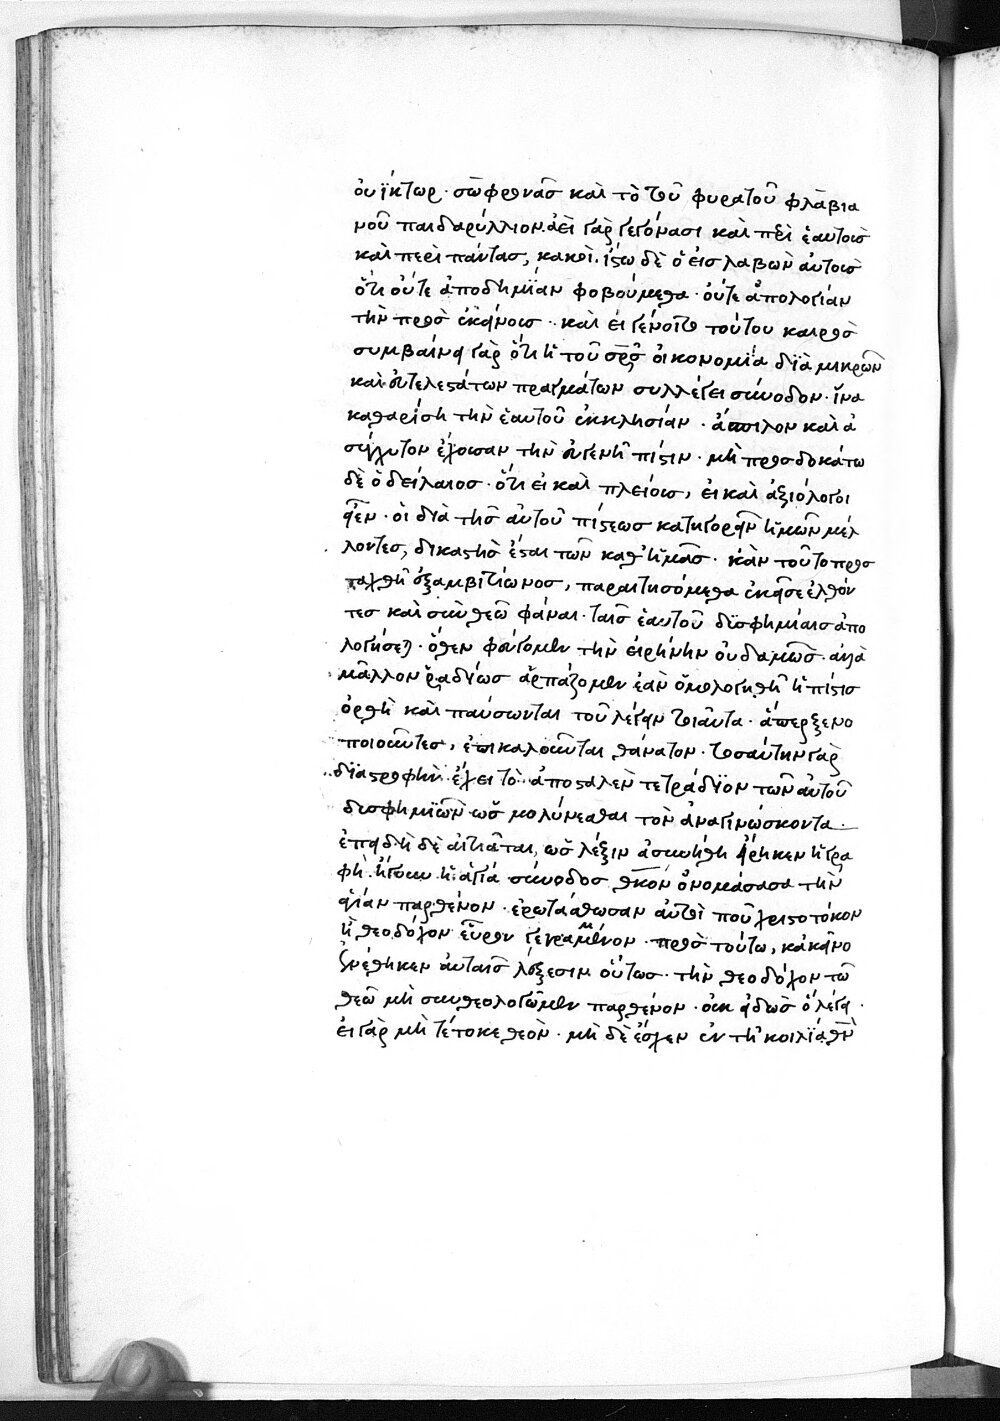 οὐΐκτωρ · σωφρονᾶς καὶ τὸ τοῦ φυρατοῦ φλαβια
νοῦ παιδαρύλλιον. ἀεὶ γὰρ γεγόνασι καὶ περὶ ἑαυτοὺς
καὶ περὶ πάντας, κακοί. ἴστω δὲ ὁ εἰσλαβὼν αὐτοὺς
ὅτι οὔτε ἀποδημίαν φοβούμεθα · οὔτε ἀπολογίαν
τὴν πρὸς ἐκείνους · καὶ εἰ γένοιτο τούτου καιρὸς
συμβαίνει γὰρ ὅτι ἡ τοῦ σρς οἰκονομία διὰ μικρῶν
καὶ εὐτελεστάτων πραγμάτων συλλέγει σύνοδον · ἵνα
καθαρίση τὴν ἑαυτοῦ ἐκκλησίαν · ἄσπιλον καὶ ἀ
σύγχυτον ἔχουσαν τὴν εὐγενῆ πίστιν · μὴ προσδοκάτω
δὲ ὁ δείλαιος · ὅτι εἰ καὶ πλείους, εἰ καὶ ἀξιόλογοι
εἶεν · οἱ διὰ τῆς αὐτοῦ πίστεως κατηγορεῖν ἡμῶν μέλ
λοντες, δικαστὴς ἔσται τῶν καθ' ἡμᾶς · κἂν τοῦτο προς
ταχθῆ ἐξ ἀμβιτίωνος, παραιτησόμεθα ἐκεῖσε ἐλθόν
τες καὶ σὺν θεῶ φάναι · ταῖς ἑαυτοῦ δυσφημίαις ἀπο
λογήσεται · ὅθεν φεύγομεν τὴν εἰρήνην οὐδαμῶς · ἀλλὰ
μᾶλλον ῥαδίως ἁρπάζομεν ἐὰν ὁμολογηθῆ ἡ πίστις
ὀρθὴ καὶ παύσωνται τοῦ λέγειν τοιαῦτα · ἅπερ ξενο
ποιοῦντες, ἐπικαλοῦνται θάνατον · τοσαύτην γὰρ
διαστροφὴν ἔχει τὸ ἀποσταλὲν τετράδιον τῶν αὐτοῦ
δυσφημιῶν ὡς μολύνεσθαι τὸν ἀναγινώσκοντα
ἐπειδὴ δὲ αἰτιᾶται, ὡς λέξιν ἀσυνήθη εἴρηκεν ἡ γρα
φὴ ἤγουν ἡ ἁγία σύνοδος θκον ὀνομάσασα τὴν
ἁγίαν παρθένον · ἐρωτάσθωσαν αὐτοὶ ποῦ χριστοτόκον
ἢ θεοδόχον εὗρον γεγραμμένον · πρὸς τούτω, κἀκεῖνο
ἐνέθηκεν αὐταῖς λέξεσιν οὕτως · τὴν θεοδόχον τῶ
θεῶ μὴ συνθεολογῶμεν παρθένον · οὐκ εἰδὼς ὃ λέγει ·
εἰ γὰρ μὴ τέτοκε θεὸν · μὴ δὲ ἔσχεν ἐν τῆ κοιλία θν